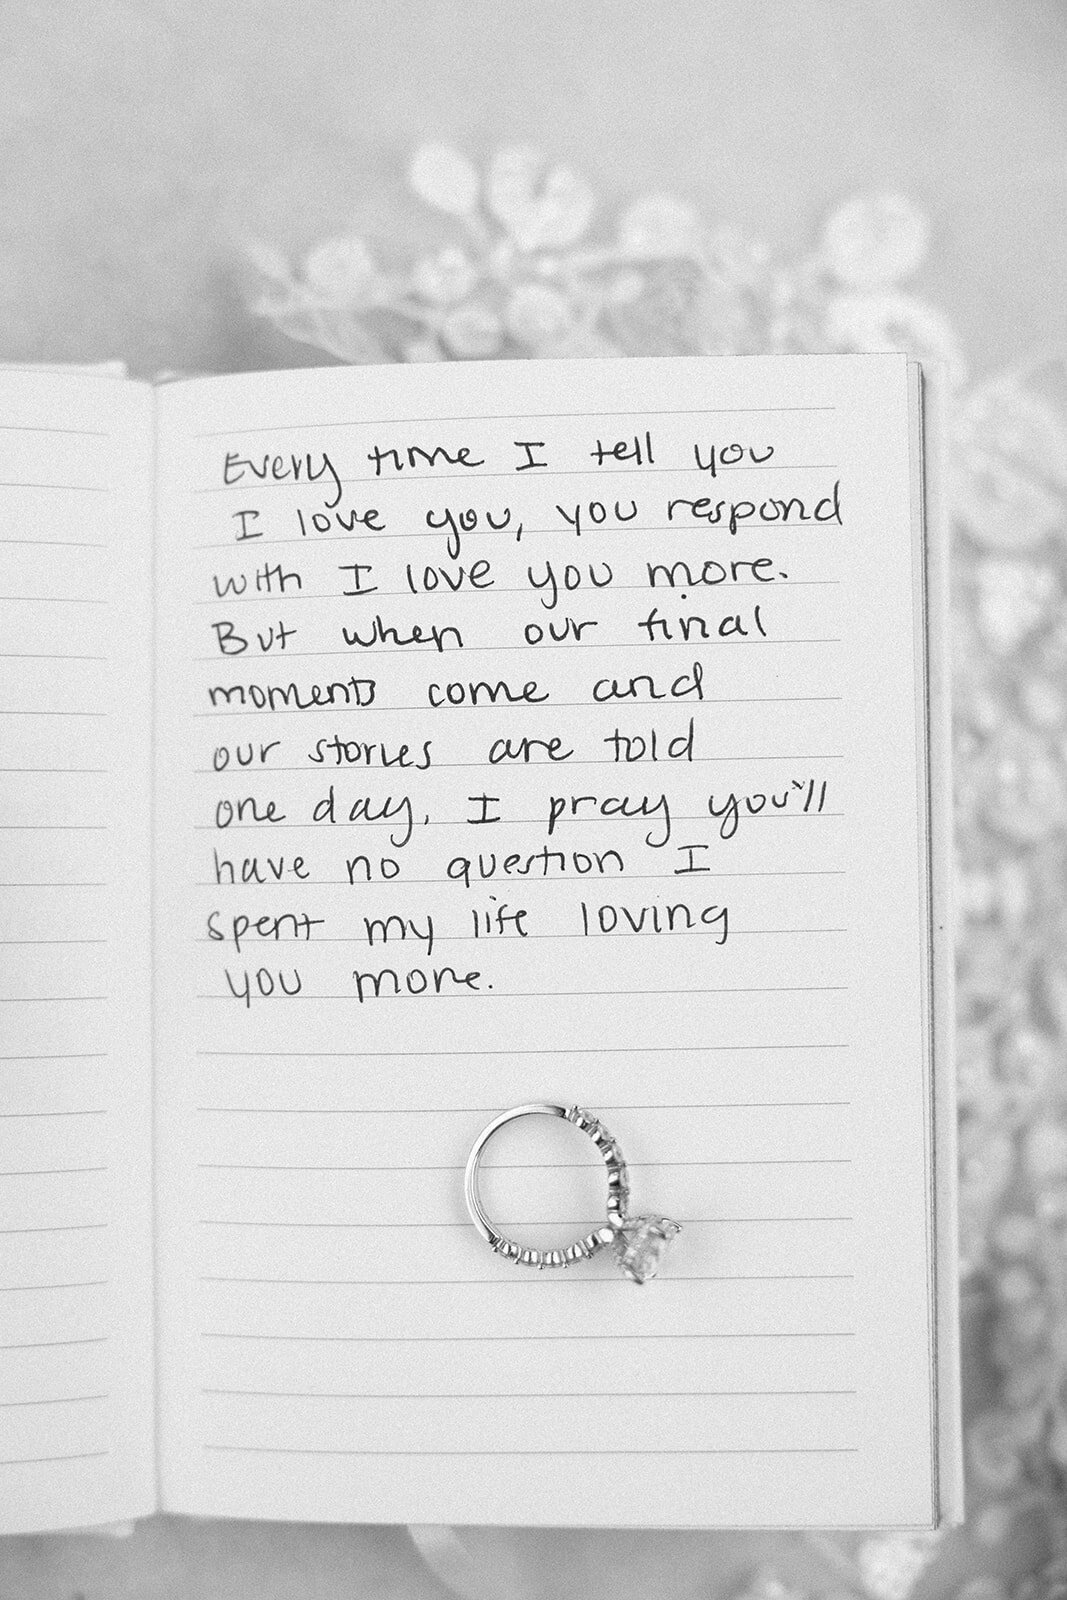 Every time I tell you
I love you, you respond
with I love you more.
But when our final
moments come and
our stories are told
one day, I pray you'll
have no question I
spent my life loving
you more.